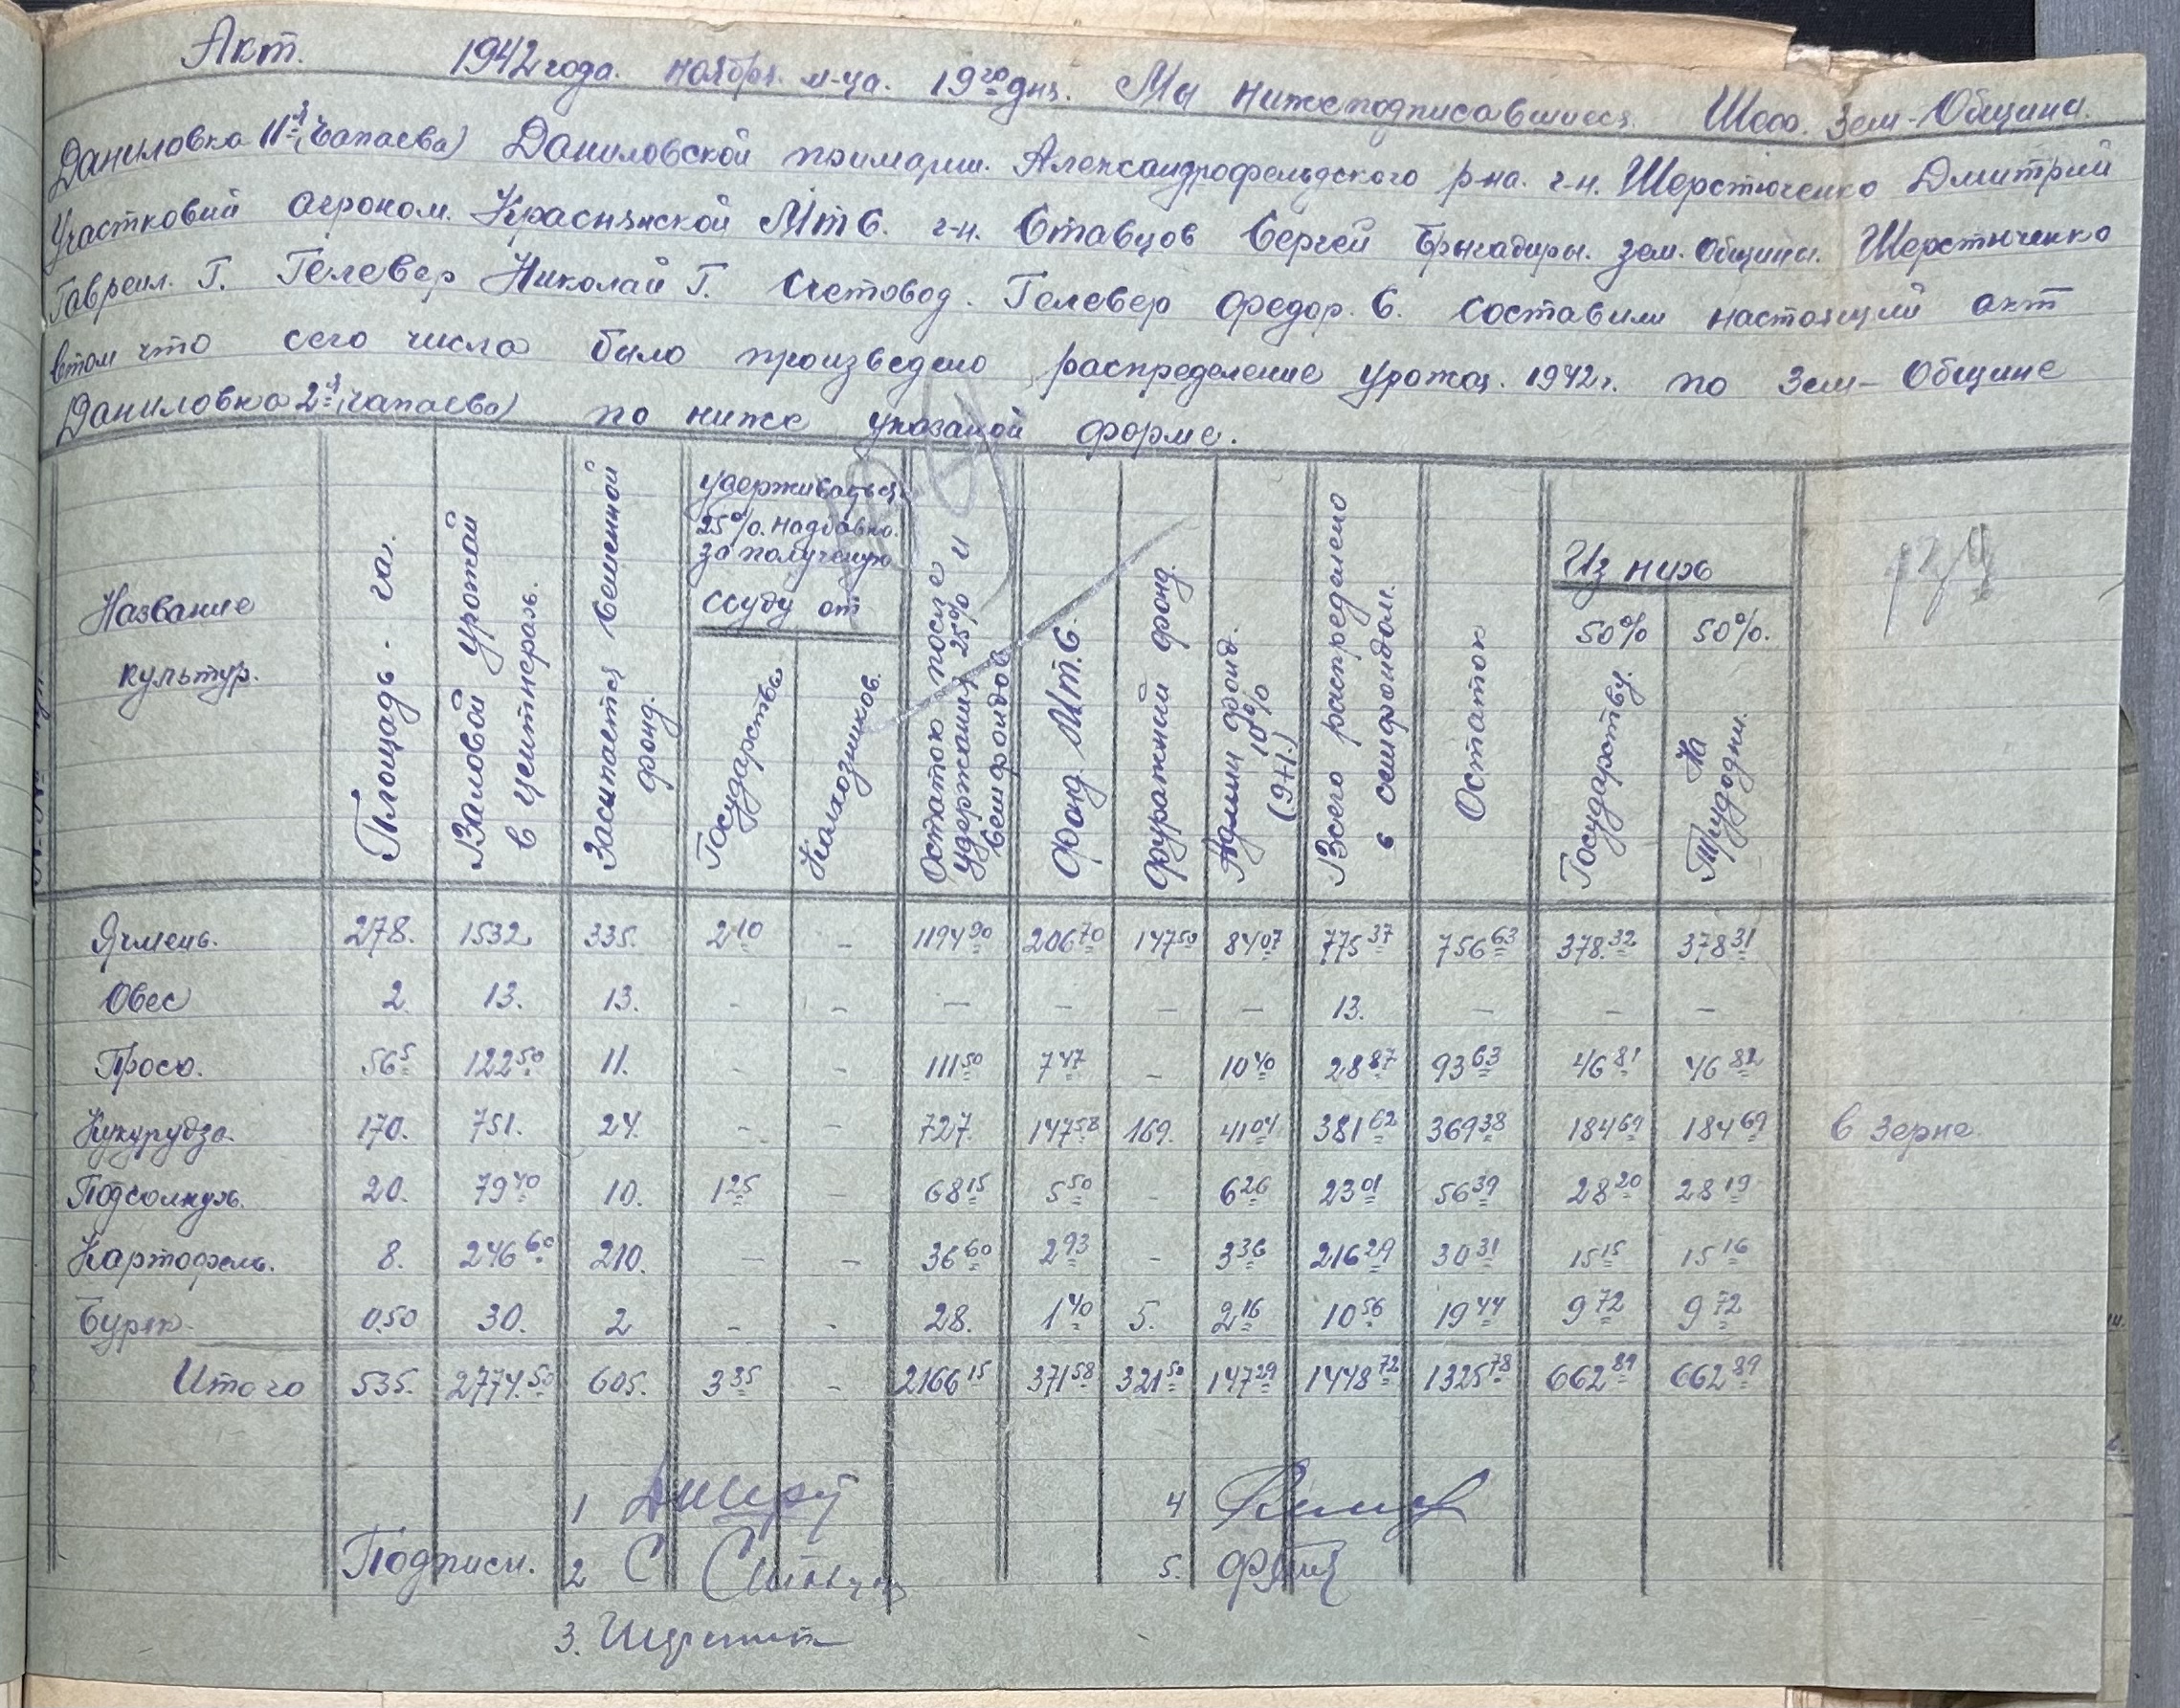 Акт. 1942 года. ноября. м-ца. 19го дня. Мы нижеподписавшиеся Шеф. Зем-Община.
Даниловка IIя (Чапаева) Даниловской примарии. Александрофельдского р-на. г-н. Шерстюченко Дмитрий
Участковий агроном. Краснянской МТС. г-н. Ставцов Сергей Брыгадиры. зем. Общины. Шерстюченко
Гавреил. Г. Гелевер Николай Г. Счетовод. Гелевер Федор. С. составили настоящий акт
втом что сего числа было произведено распределение урожая. 1942 г. по Зем-Общине
Даниловка 2я (чапаева) по ниже указаной форме.
Название культур.
Площадь - га.
Валовой урожай в центнерах.
Засипается семенной фонд.
удерживаться 25%. надбавка. за полученую ссуду от
Государства
Колхозников.
Остаток после удержания 25% и семфондов
Фонд М.т.с.
Фуражний фонд.
Админ фонд. 10% (9+1.)
Всего распределено с семфондом.
Остаток
Из них
50% Государству.
50%. На Трудодни.
Ячмень. 278. 1532 335. 2 10 - 1194 90 206 70 147 50 84 07 775 37 756 63 378. 32 378 31
Овес 2 13. 13. - - - - - - 13. - - -
Просо. 56 5 122 50 11. - - 111 50 7 47 - 10 40 28 87 93 63 46 81 46 82
Кукурудза. 170. 751. 24. - - 727. 147 58 169. 41 04 381 62 369 38 184 69 184 69 в зерне
Подсолнух. 20. 79 40 10. 1 25 - 68 15 5 50 - 6 26 23 01 56 39 28 20 28 19
Картофель. 8. 246 60 210. - - 36 60 2 93 - 3 36 216 29 30 31 15 15 15 16
Буряк. 0.50 30. 2 - - 28. 1 40 5. 2 16 10 56 19 44 9 72 9 72
Итого 535. 2774. 50 605. 3 35 - 2166 15 371 58 321 50 147 29 1448 72 1325 78 662 89 662 89
1 4
Подписи. 2 С 5.
3.